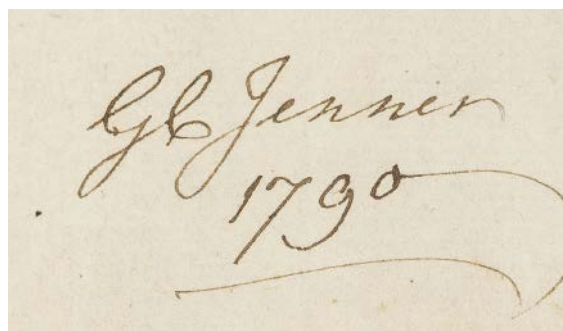 GC Jenner
1790